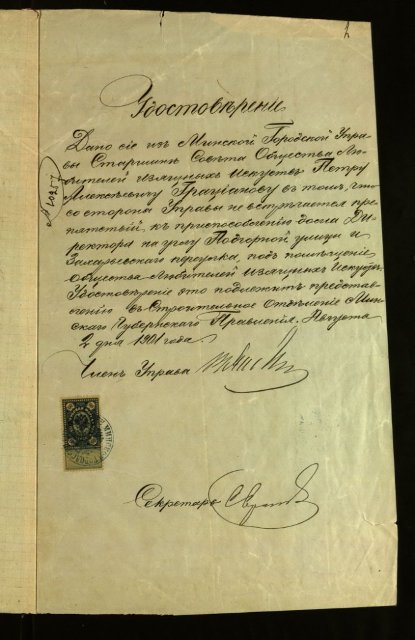 2
Удостовѣренiе
№ 10257
Дано сiе изъ Минской Городской Упра-
вы Старшинѣ Совѣта Общества Лю-
бителей изящныхъ искуствъ Петру
Алексѣевичу Грацiанову въ томъ, что
со стороны Управы не встрѣчается пре-
пятствiй, къ приспособленiю дома
ректора на углу Подгорной улицы и
Захарьевскаго переулка, подъ помѣщенiе
Общества Любителей изящныхъ Искусствъ.
Удостовѣренiе это подлежитъ представ-
ленiю въ Строительное Отдѣленiе Мин-
скаго Губернскаго Правленiя. Августа
2 дня 1901 года.
Членъ Управы
Секретарь